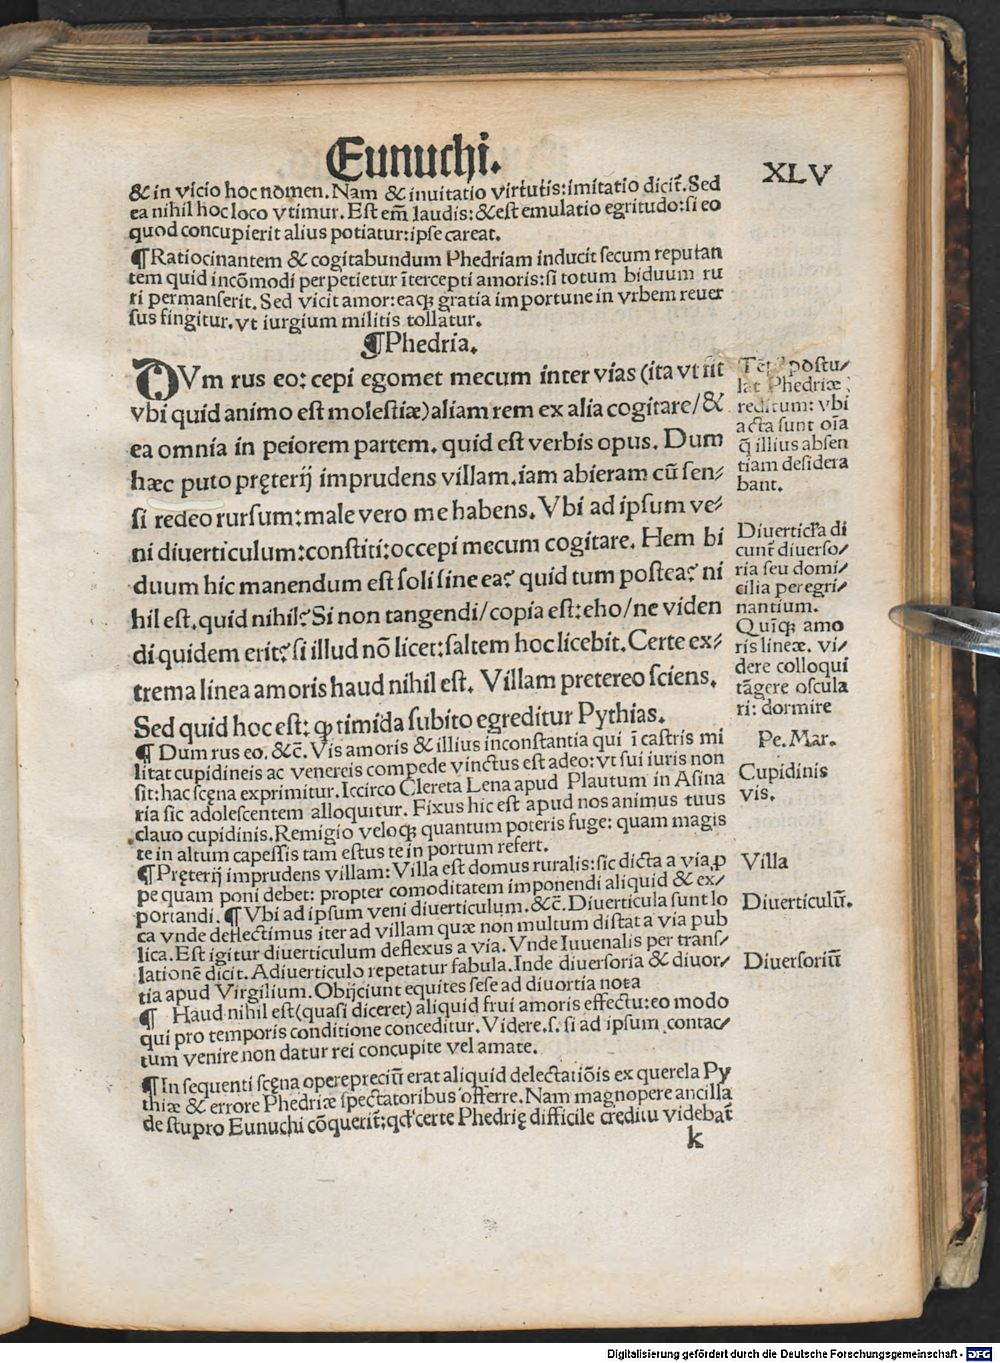 Eunuchi.
XLV
& in vicio hoc nomen. Nam & inuitatio virtutis: imitatio dicit᷑. Sed
ea nihil hoc loco vtimur. Est em̄ laudis: & est emulatio egritudo: si eo
quod concupierit alius potiatur: ipse careat.
¶ Ratiocinantem & cogitabundum Phedriam inducit secum reputan
tem quid incōmodi perpetietur ītercepti amoris: si totum biduum ru
ri permanserit. Sed vicit amor: eaqꝫ gratia importune in vrbem reuer
sus fingitur. vt iurgium militis tollatur.
¶ Phedria.
DVm rus eo: cepi egomet mecum inter vias (ita vt fit
vbi quid animo est molestiæ) aliam rem ex alia cogitare/ &
ea omnia in peiorem partem. quid est verbis opus. Dum
hæc puto pręterij imprudens villam. iam abieram cū sen⸗
si redeo rursum: male vero me habens. Vbi ad ipsum ve⸗
ni diuerticulum: constiti: occepi mecum cogitare. Hem bi
duum hic manendum est soli sine ea? quid tum postea? ni
hil est. quid nihil? Si non tangendi/ copia est: eho/ ne viden
di quidem erit? si illud nō licet: saltem hoc licebit. Certe ex⸗
trema linea amoris haud nihil est. Villam pretereo sciens.
Sed quid hoc est: ꝙ timida subito egreditur Pythias.
¶ Dum rus eo. &c̄. Vis amoris & illius inconstantia qui ī castris mi
litat cupidineis ac venereis compede vinctus est adeo: vt sui iuris non
sit: hac scęna exprimitur. Iccirco Clereta Lena apud Plautum in Asina
ria sic adolescentem alloquitur. Fixus hic est apud nos animus tuus
clauo cupidinis. Remigio veloqꝫ quantum poteris fuge: quam magis
te in altum capessis tam estus te in portum refert.
¶ Pręterij imprudens villam: Villa est domus ruralis: sic dicta a via ꝓ
pe quam poni debet: propter comoditatem imponendi aliquid & ex⸗
portandi. ¶ Vbi ad ipsum veni diuerticulum. &c̄. Diuerticula sunt lo
ca vnde deflectimus iter ad villam quæ non multum distat a via pub
lica. Est igitur diuerticulum deflexus a via. Vnde Iuuenalis per trans⸗
lationē dicit. A diuerticulo repetatur fabula. Inde diuersoria & diuor⸗
tia apud Virgilium. Obijciunt equites sese ad diuortia nota
¶ Haud nihil est (quasi diceret) aliquid frui amoris effectu: eo modo
qui pro temporis conditione conceditur. Videre. s. si ad ipsum contac⸗
tum venire non datur rei concupite vel amate.
¶ In sequenti scęna operepreciū erat aliquid delectatiōis ex querela Py
thiæ & errore Phedriæ spectatoribus offerre. Nam magnopere ancilla
de stupro Eunuchi cōquerit᷑: qd̕ certe Phedrię difficile creditu videbat᷑
k
postu⸗
lat Phedriæ
reditum: vbi
acta sunt oīa
q̄ illius absen
tiam desidera
bant.
Diuerticl̕a di
cunt᷑ diuerso⸗
ria seu domi⸗
cilia peregri⸗
nantium.
Quīqꝫ amo
ris lineæ. vi⸗
dere colloqui
tāgere oscula
ri: dormire
Pe. Mar.
Cupidinis
vis.
Villa
Diuerticulū.
Diuersoriū
Digitalisierung gefördert durch die Deutsche Forschungsgemeinschaft - DFG